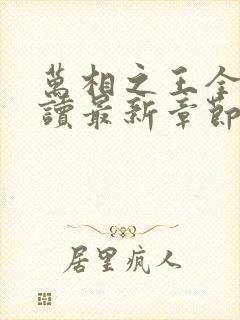 萬相之王全
讀最新章節
居里疯人